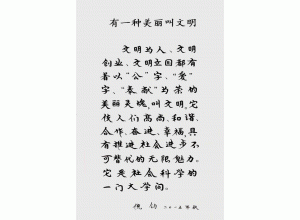 有一种美丽叫文明
文明为人、文明
创业、文明立国都有
着以“公”字、“爱”
字、“奉献”为荣的
美丽灵魂，叫文明，它
使人们高尚、和谐、
合作、奋进、幸福，具
有推进社会进步不
可替代的无限魅力。
它是社会科学的
一门大学问。